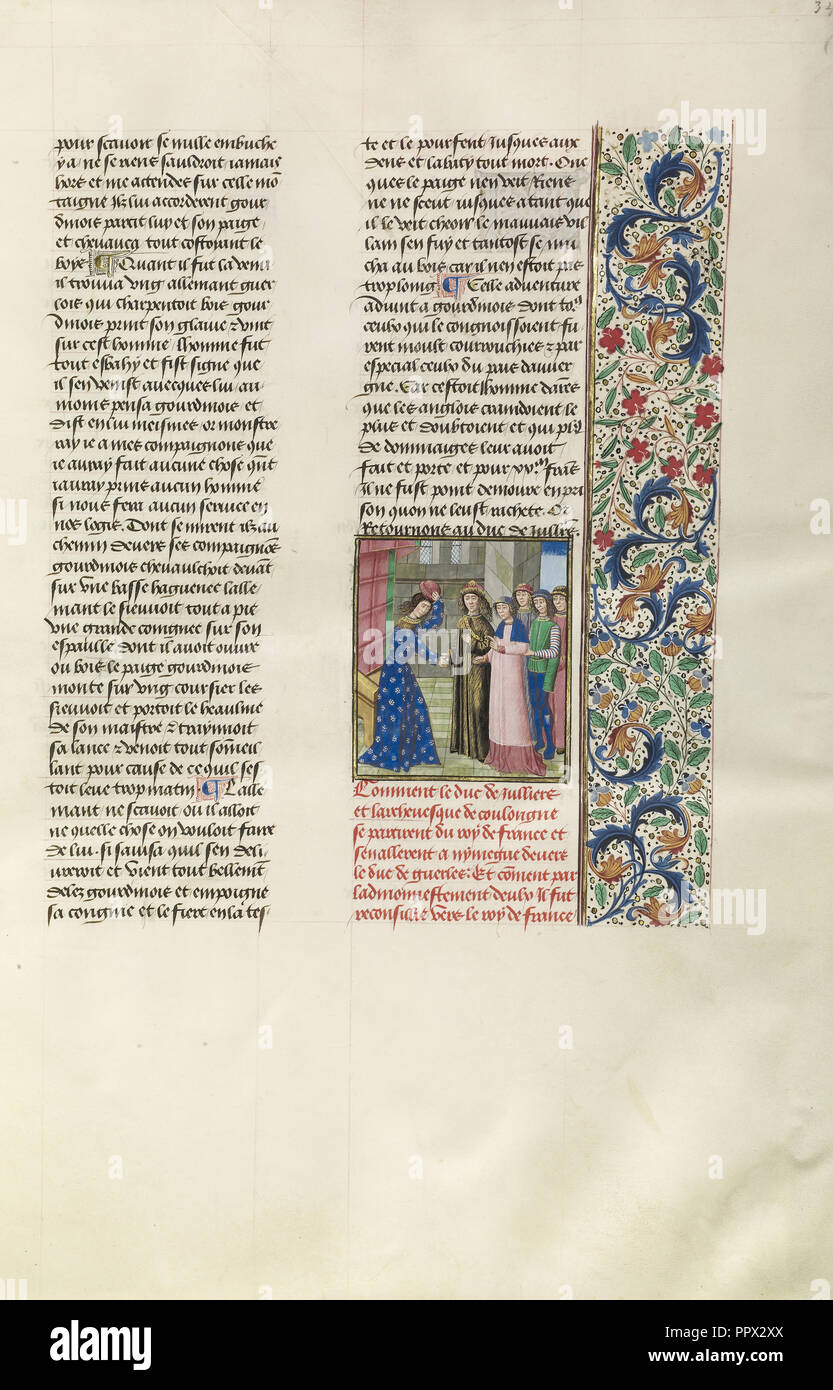 34
pour scavoir se nulle embuche
y a. ne se riens sauldroit iamais
hors et me actendes sur celle mō
taigne Ilz lui accorderent gour
dinois partit luy et son paige
et chevauca tout costoiant le
boys Quant il fut la venu
il trouva vng allemant guer
lois qui charpentoit bois gour
dinois print son glaive & vint
sur cest homme lhomme fut
tout esbahy et fist signe que
il sen venist avecques lui au
moins pensa gourdinois et
dist en lui meismes or monstre
ray ie a mes compaignons que
ie auray fait aucune chose qūt
iauray prins aucun homme
si nous fera aucun service en
nos logis. Dont se mirent ilz au
chemin devers ses compaignōs
gourdinois chevaulchoit devāt
sur vne basse haguenee lalle
mant le sieuvoit tout a pie
vne grande coniguee sur son
espaulle dont il avoit ouvre
ou bois le paige gourdinois
monte sur vng coursier les
sieuvoit et portoit le beaulme
de son maistre & traynoit
sa lance & venoit tout someil
lant pour cause de ce quil ses
toit leve trop matin. Lalle
mant ne scavoit ou il alloit
ne quelle chose on vouloit faire
de lui. si savisa quil sen deli
vreroit et vient tout bellemēt
delez gourdinois et empoigne
sa coniguie et le fiert en la tes-
te et le pourfent Iusques aux
dens et labaty tout mort. Onc
ques le paige nen veit Riens
ne ne sceut iusques a tant que
il le veit cheoir le mauvais vil
lain sen fuy et tantost se mu
cha au bois car il nen estoit pas
trop loing Telle adventure
advint a gourdinois dont to9
ceulx qui le congnoissoient fu
rent moult courrouchies & par
especial ceulx du pais dauver
gne. Car cestoit lhomme darmes
que les anglois craindoient le
plus et doubtoient et qui pl9
de dommaiges leur avoit
fait et porte et pour frans
Il ne fust point demoure en pri
son quon ne leust rachete. Or
Retournons au duc de Iulliers
Comment le duc de iulliers
et larchevesque de coulongne
se partirent du roy de france et
senallerent a nymegue devers
le duc de guerles: Et cōment par
ladmonnestement deulx Il fut
reconsillie vers le roy de france
alamy
Image ID: PPX2XX
www.alamy.com